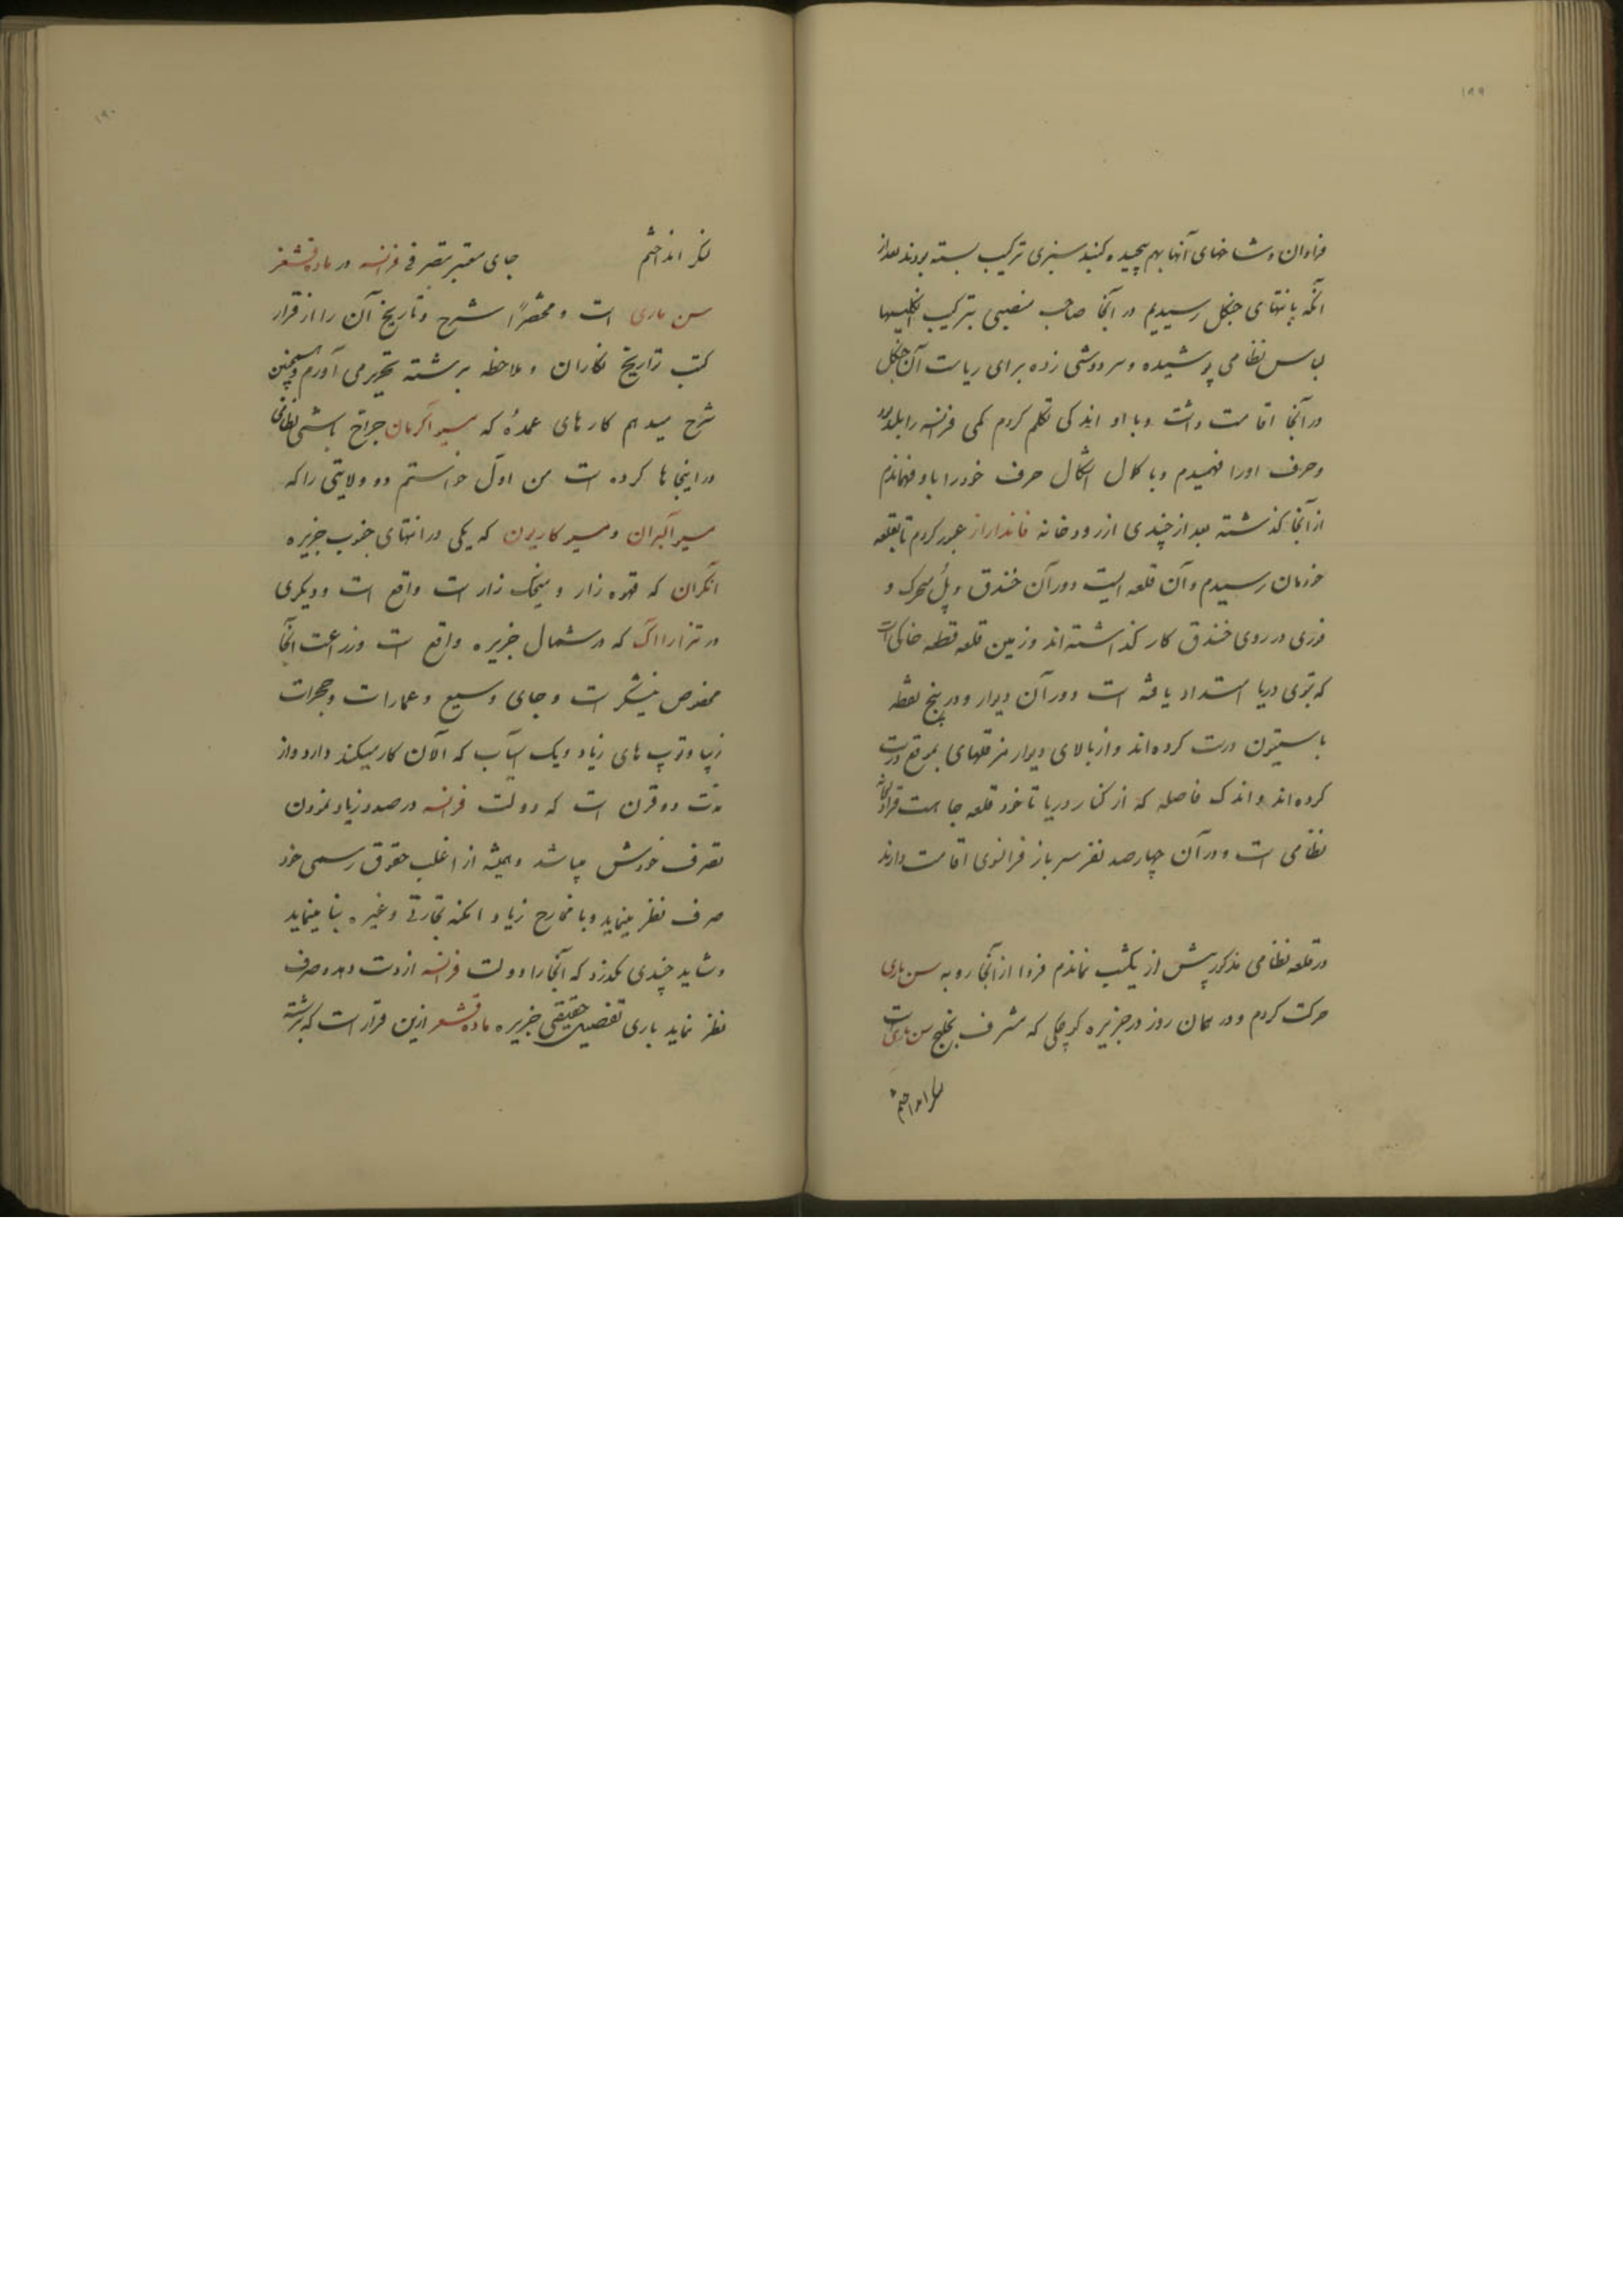 ۱۸۹
فراوان و شاخهای آنها بهم پیچیده گنبد سبزی ترکیب بسته بودند بعد از
آنکه بانتهای جنگل رسیدیم در آنجا صاحب منصبی بترکیب انگلیسها
لباس نظامی پوشیده و سردوشی زده برای ریاست آن جنگل
در آنجا اقامت داشت و با او اندکی تکلم کردم کمی فرانسه را بلد بود
و حرف او را فهمیدم و با کمال اشکال حرف خود را باو فهماندم
از آنجا گذشته بعد از چندی از رودخانه فانداراز عبور کردم تا بقلعه
خودمان رسیدم و آن قلعه ایست دور آن خندق و پل متحرک و
فوزی در روی خندق کار گذاشته اند و زمین قلعه قطعه خاکی است
که بتوی دریا امتداد یافته است و دور آن دیوار و در پنج نقطه
باستیون درست کرده اند و از بالای دیوار مزقلهای بموقع درست
کرده اند و اندک فاصله که از کنار دریا تا خود قلعه جا هست
نظامی است و در آن چهارصد نفر سرباز فرانسوی اقامت دارند
در قلعه نظامی مذکور بیش از یکشب نماندم فردا از آنجا رو به سن ماری
حرکت کردم و در همان روز در جزیره کوچکی که مشرف بخلیج سن ماری است
لنگر انداختم
۱۹۰
لنگر انداختم جای معتبر متصرفی فرانسه در مادهقشغر
سن ماری است و مختصراً شرح و تاریخ آن را از قرار
کتب تواریخ نگاران و ملاحظه برشته تحریر می آورم و همچنین
شرح میدهم کارهای عمدهٔ که مسیو اکرمان جراح باشی نظامی
در اینجاها کرده است من اول خواستم دو ولایتی را که
مسیو آلبران و مسیو کاریون که یکی در انتهای جنوب جزیره
آنکران که قهوه زار و میخک زار است واقع است و دیگری
در تزاراک که در شمال جزیره واقع است و زراعت آنجا
مخصوص نیشکر است و جای وسیع و عمارات و حجرات
زیبا و توپ های زیاد و یک آسیاب که الان کار میکند دارد و از
مدت دو قرن است که دولت فرانسه در صدد زیاد نمودن
تصرف خودش میباشد و همیشه از اغلب حقوق رسمی خود
صرف نظر مینماید و با مخارج زیاد امکنه تجارتی و غیره بنا مینماید
و شاید چندی نگذرد که آنجا را دولت فرانسه از دست دهد و صرف
نظر نماید باری تفصیل حقیقی جزیره مادهقشغر ازین قرار است که برشته